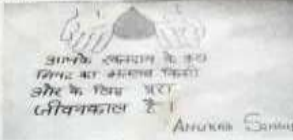 आपके रक्तदान के कुछ
मिनट का मतलब किसी
और के लिए पूरा
जीवनकाल है।
ANURAG